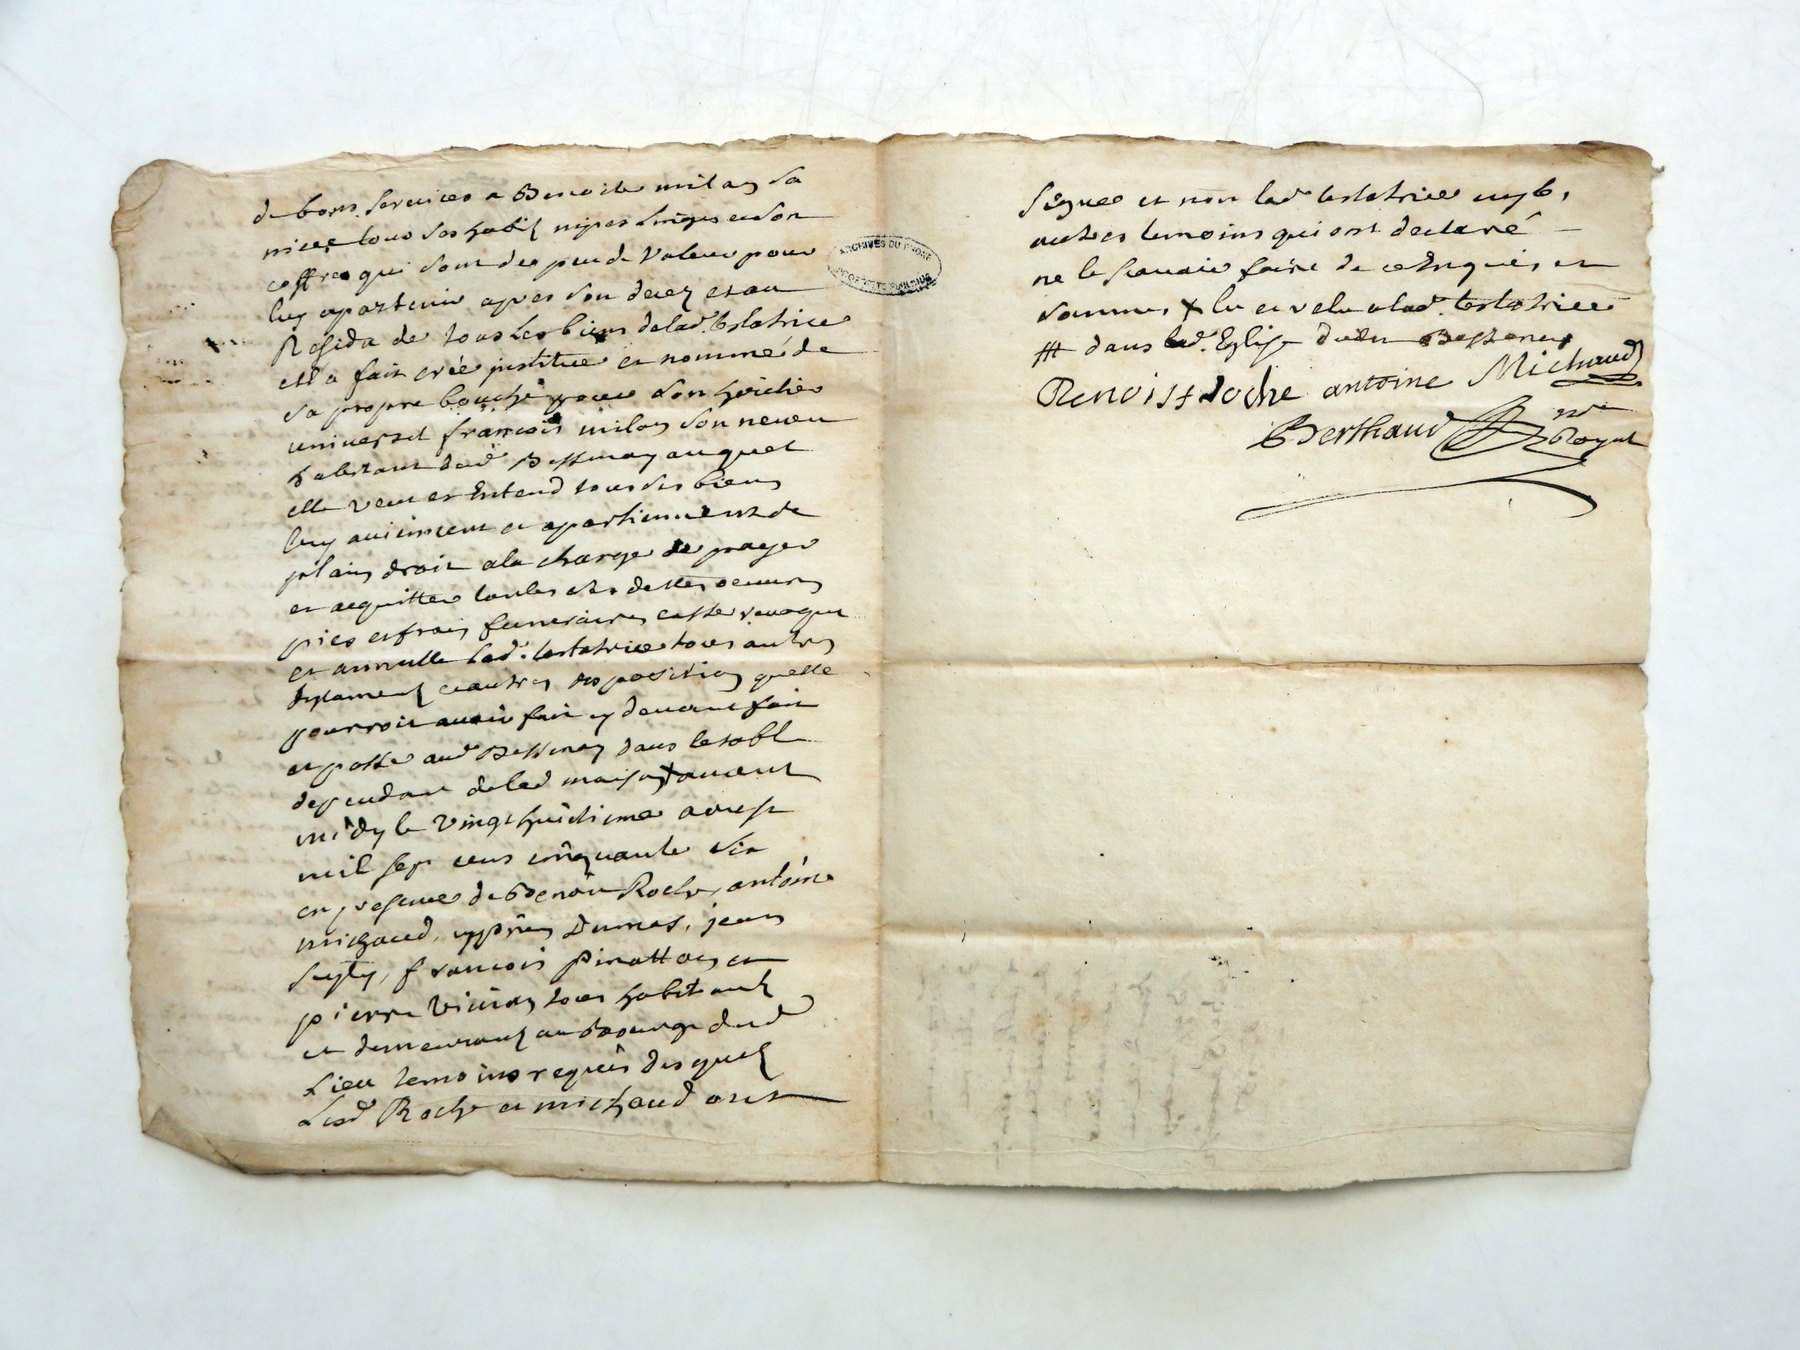 de bons services a Benoite milan sa
niece tous ses habitz nipes linges et son
coffre qui sont de peu de valeur pour
luy apartenir apres son decez et au
Residu de tous les biens de lad. testatrice
ell a fait créé institue et nommé de
sa propre bouche pour son heritier
universel françois milan son neveu
habitant dud Bessenay auquel
elle veut et entend tous ses biens
luy aviennent et apartiennent de
plain droit a la charge de payer
et acquitter toutes ses dettes oeuvres
pies et frais funeraires casse revoque
et annulle lad. testatrice tous autres
testamens et autres dispositions quelle
pourroit avoir fait cy devant fait
et passé aud Bessenay dans
dependant de lad maison avant
midy le vingt huitieme
mil sept cens cinquante six
en presence de Benoit Roche, antoine
michaud, Dumas, jean
françois Pinatton et
pierre tous habitantz
et demeurantz au Bourg dud
Lieu temoins requis desquelz
Lesd Roche et michaud ont
signe et non lad testatrice ny les
autres temoins qui ont declaré
ne le scavoir faire de ce Enquis et
sommes X lu et relu a lad. testatrice
# dans lad. Eglise dudit Bessenay
Benoist roche antoine Michaud
Berthaud nre
Royal
ARCHIVES DU RHONE